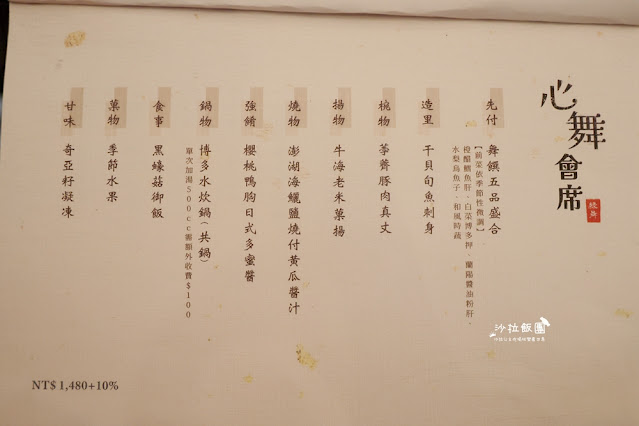 心舞會席
先付
舞饌五品盛合
【前菜依季節性微調】
橙醋鱈魚肝．白菜博多押 蘭陽醬油粉肝．
水梨烏魚子．和風時蔬
造里
干貝旬魚刺身
椀物
荸薺豚肉真丈
揚物
牛海老米菓揚
燒物
澎湖海鱺鹽燒付黃瓜醬汁
強餚
櫻桃鴨胸日式多蜜醬
鍋物
博多水炊鍋(共鍋)
單次加湯500cc需額外收費$100
食事
黑蠔菇御飯
菓物
季節水果
甘味
奇亞籽凝凍
NT$ 1,480+10%
沙拉飯團